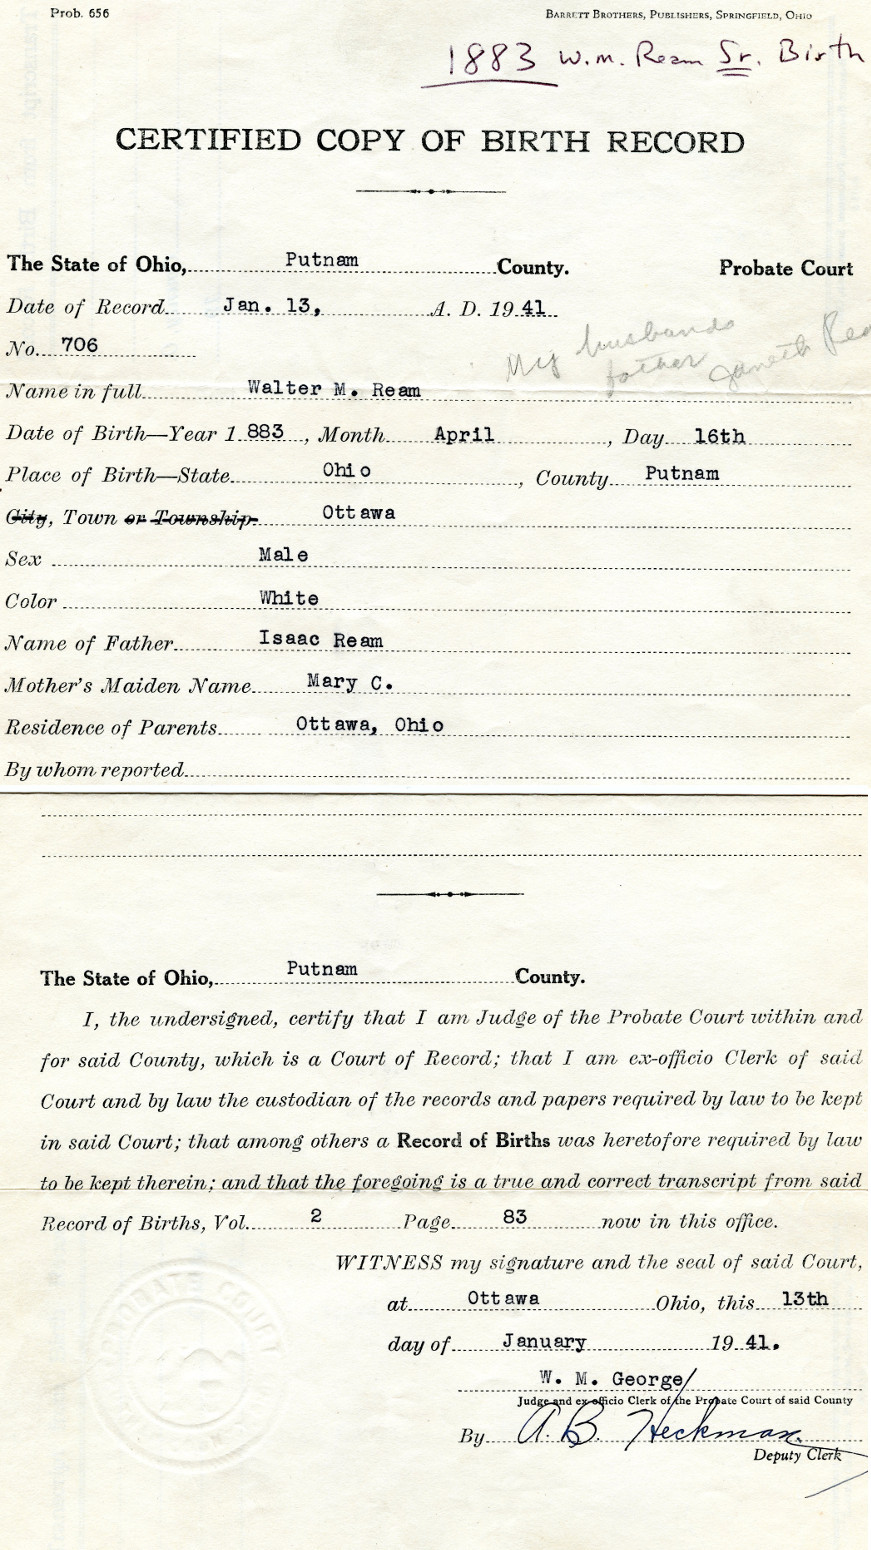 Prob. 656
BARRETT BROTHERS, PUBLISHERS, SPRINGFIELD, OHIO
1883 W.m. Ream Sr. Birth
CERTIFIED COPY OF BIRTH RECORD
The State of Ohio, Putnam County. Probate Court
Date of Record Jan. 13, A. D. 19 41
My husbands
No. 706
father Janeth
Name in full Walter M. Ream
Date of Birth—Year 1 883, Month April, Day 16th
Place of Birth—State Ohio, County Putnam
City, Town or Township Ottawa
Sex Male
Color White
Name of Father Isaac Ream
Mother's Maiden Name Mary C.
Residence of Parents Ottawa, Ohio
By whom reported
The State of Ohio, Putnam County.
I, the undersigned, certify that I am Judge of the Probate Court within and
for said County, which is a Court of Record; that I am ex-officio Clerk of said
Court and by law the custodian of the records and papers required by law to be kept
in said Court; that among others a Record of Births was heretofore required by law
to be kept therein; and that the foregoing is a true and correct transcript from said
Record of Births, Vol. 2 Page 83 now in this office.
WITNESS my signature and the seal of said Court,
at Ottawa Ohio, this 13th
day of January 19 41.
W. M. George
Judge and ex-officio Clerk of the Probate Court of said County
By A. B. Heckman
Deputy Clerk
PROBATE COURT